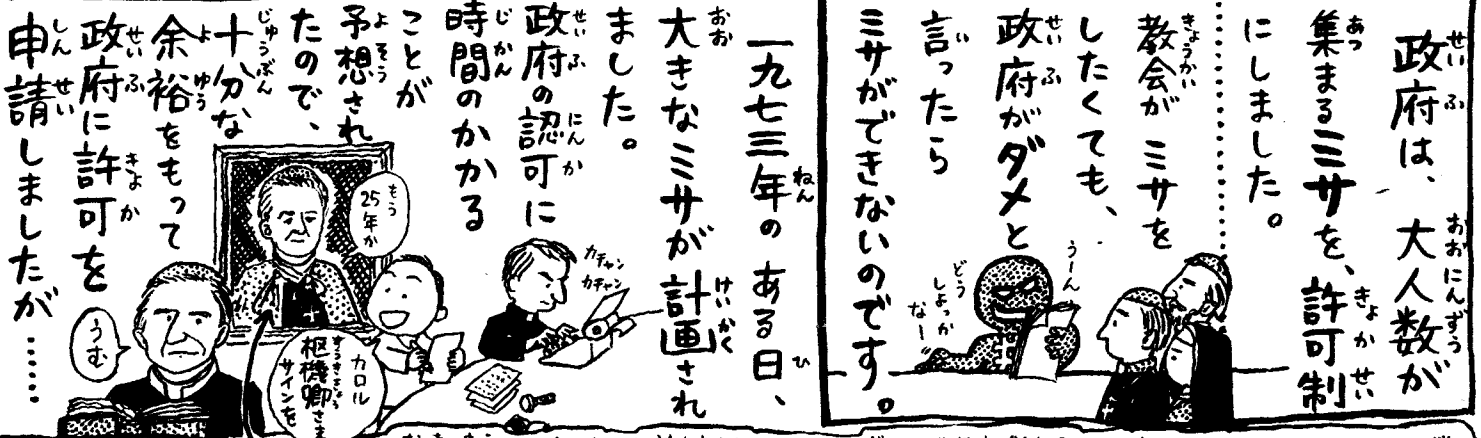 政府は、大人数が
集まるミサを、許可制
にしました。
教会がミサを
したくても、
政府がダメと
言ったら
ミサができないのです。
うーん
どう
しよっか
なー
一九七三年のある日、
大きなミサが計画され
ました。
政府の認可に
時間のかかる
ことが
予想され
たので、
十分な
余裕をもって
政府に許可を
申請しましたが……
カチャン
カチャン
もう
25年か
カロル
枢機卿さま
サインを
うむ